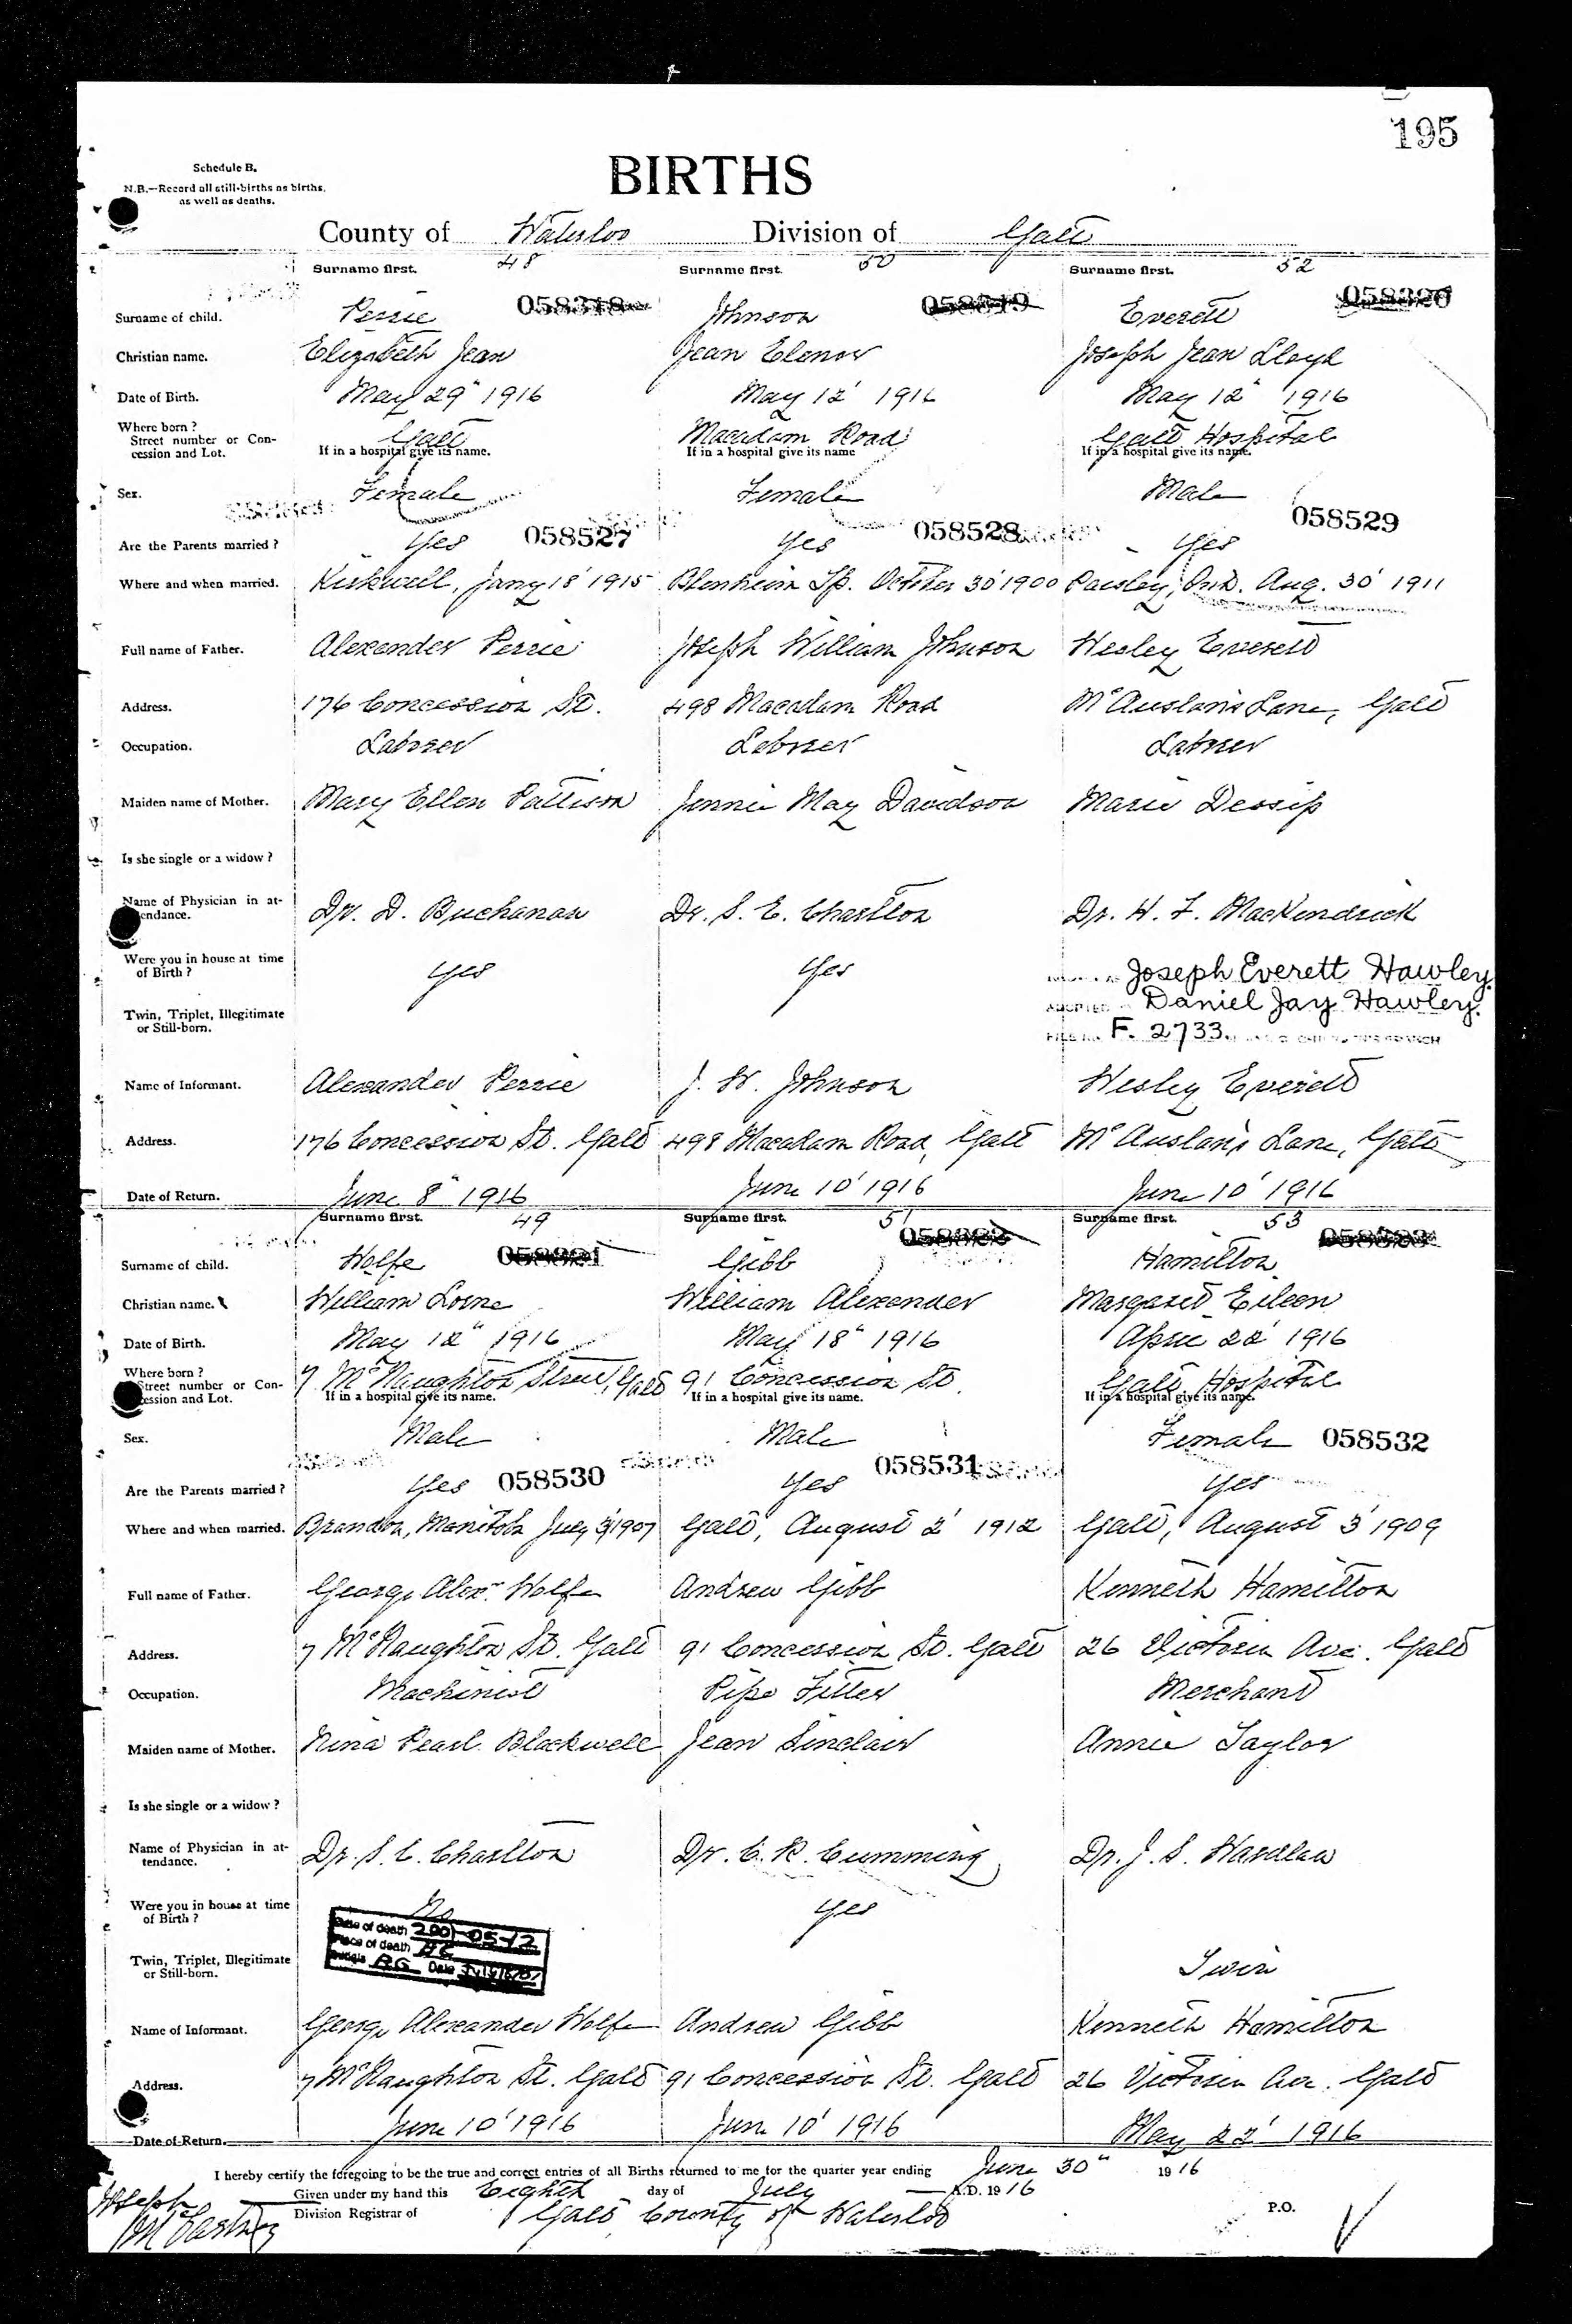 195
Schedule B.
BIRTHS
N.B.—Record all still-births as births,
as well as deaths.
County of Waterloo Division of Galt
Surname first. 48 Surname first. 50 Surname first. 52
Surname of child. Perrie 058318 Johnson 058319 Everett 058320
Christian name. Elizabeth Jean Jean Elenor Joseph Jean Lloyd
Date of Birth. May 29" 1916 May 12' 1916 May 12" 1916
Where born? Galt Macadam Road Galt Hospital
Street number or Con-
cession and Lot. If in a hospital give its name. If in a hospital give its name If in a hospital give its name.
Sex. Female Female Male
058527 058528 058529
Are the Parents married? Yes Yes Yes
Where and when married. Kirkwall, Jany 18' 1915 Blenheim Tp. October 30' 1900 Paisley, Ont. Aug. 30' 1911
Full name of Father. Alexander Perrie Joseph William Johnson Wesley Everett
Address. 176 Concession St. 498 Macadam Road McAuslan's Lane, Galt
Occupation. Laborer Laborer Laborer
Maiden name of Mother. Mary Ellen Pattison Jennie May Davidson Marie Dessip
Is she single or a widow?
Name of Physician in at-
tendance. Dr. D. Buchanan Dr. S. E. Charlton Dr. H. F. MacKendrick
Were you in house at time
of Birth? Yes Yes
Joseph Everett Hawley.
ADOPTED Daniel Jay Hawley.
Twin, Triplet, Illegitimate
or Still-born.
FILE No. F. 2733.
Name of Informant. Alexander Perrie J. W. Johnson Wesley Everett
Address. 176 Concession St. Galt 498 Macadam Road, Galt McAuslan's Lane, Galt
Date of Return. June 8" 1916 June 10' 1916 June 10' 1916
Surname first. 49 Surname first. 51 Surname first. 53
Surname of child. Wolfe 058321 Gibb 058322 Hamilton 058323
Christian name. William Lorne William Alexander Margaret Eileen
Date of Birth. May 12" 1916 May 18" 1916 April 22' 1916
Where born? 7 McNaughton Street, Galt 91 Concession St. Galt Hospital
Street number or Con-
cession and Lot. If in a hospital give its name. If in a hospital give its name. If in a hospital give its name.
Sex. Male Male Female 058532
Are the Parents married? Yes 058530 Yes 058531 Yes
Where and when married. Brandon, Manitoba July 3' 1907 Galt, August 2' 1912 Galt, August 3' 1909
Full name of Father. George Alexr. Wolfe Andrew Gibb Kenneth Hamilton
Address. 7 McNaughton St. Galt 91 Concession St. Galt 26 Victoria Ave. Galt
Occupation. Machinist Pipe Fitter Merchant
Maiden name of Mother. Nina Pearl Blackwell Jean Sinclair Annie Taylor
Is she single or a widow?
Name of Physician in at-
tendance. Dr. S. E. Charlton Dr. C. R. Cumming Dr. J. S. Wardlaw
Were you in house at time
of Birth? No Yes
Date of death 2001-05-12
Place of death BC
Twin, Triplet, Illegitimate
or Still-born. Twin
Initials Date
Name of Informant. George Alexander Wolfe Andrew Gibb Kenneth Hamilton
Address. 7 McNaughton St. Galt 91 Concession St. Galt 26 Victoria Ave. Galt
Date of Return. June 10' 1916 June 10' 1916 May 22' 1916
I hereby certify the foregoing to be the true and correct entries of all Births returned to me for the quarter year ending June 30" 1916
Given under my hand this Eighth day of July A.D. 1916
Joseph McCartney Division Registrar of Galt County of Waterloo P.O.